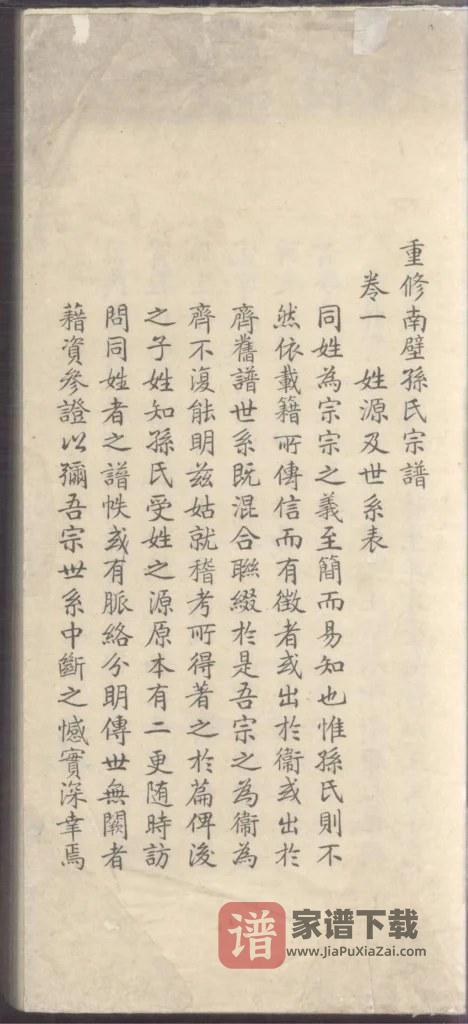 重修南壁孫氏宗譜
卷一 姓源及世系表
同姓為宗宗之義至簡而易知也惟孫氏則不
然依載籍所傳信而有徵者或出於衞或出於
齊舊譜世系既混合聯綴於是吾宗之為衞為
齊不復能明茲姑就稽考所得著之於篇俾後
之子姓知孫氏受姓之源原本有二更随時訪
問同姓者之譜帙或有脈絡分明傳世無闕者
藉資參證以彌吾宗世系中斷之憾實深幸焉
谱 家谱下载
www.JiaPuXiaZai.com